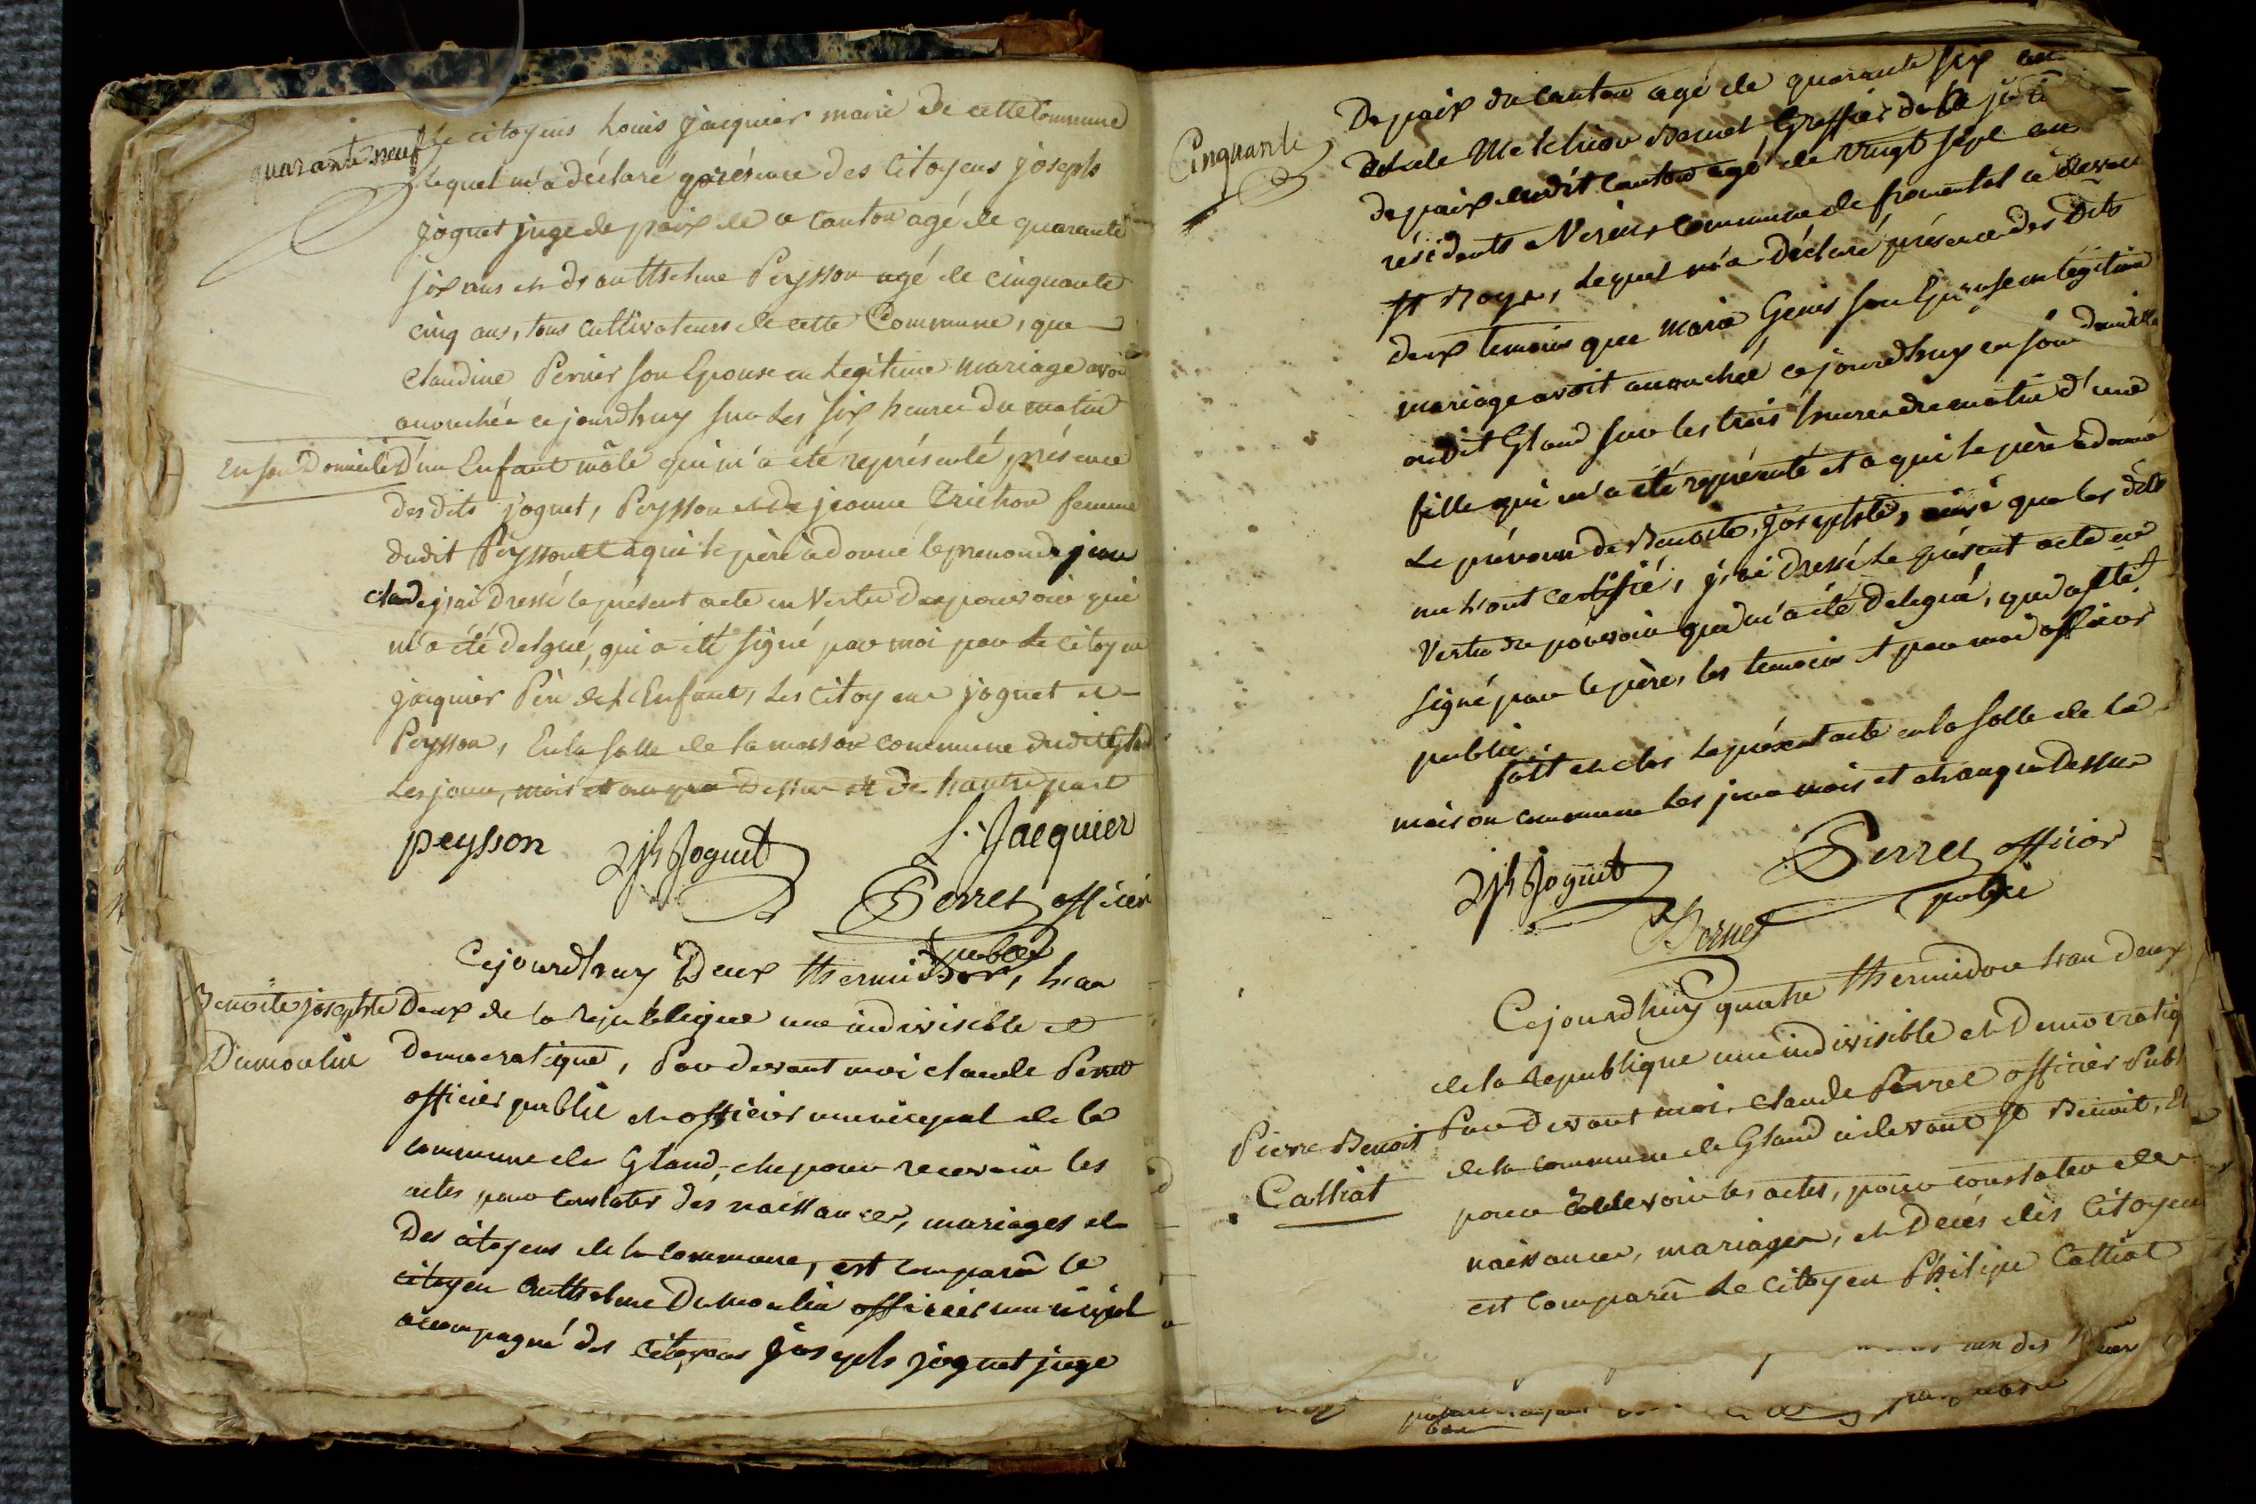 quarante neuf
Le citoyens Louis Jacquier maire de cette Commune
lequel m'a déclaré présence des Citoyens joseph
joguet juge de paix de ce canton agé de quarante
six ans et de Authelme Peysson agé de cinquante
cinq ans, tous cultivateurs de cette Commune, que
Claudine Pernier son Epouse en Legitime mariage avoit
accouchée ce jourdhuy sur Les six heures du matin
En son Domicile D'un Enfant mâle qui m'a été représenté présence
des dits joguet, Peysson et de jeanne Trichon femme
dudit Peysson et a qui le père a donné le prenom de jean
claude j'ai Dressé le présent acte en Vertu des pouvoir qui
m'a été delgué, qui a été signé par moi par Le citoyen
jacquier Père de L'Enfant, Les Citoyens joguet et
Peysson, En la salle de la maison commune dudit Gland
Les jour, mois et an que Dessus et de Lautre part
peysson Jph Joguet L. Jacquier
Perret officier
public
Cejourdhuy Deux thermidor, L'an
Benoite josephte Deux de la Republique une indivisible et
Dumoulin Democratique, Par devant moi claude Perret
officier public et officier municipal de la
commune de Gland, elu pour recevoir les
actes pour Constater des naissances, mariages et
Des citoyens de la commune, est comparû le
citoyen Authelme Dumoulin officier municipal
accompagné des Citoyens joseph joguet juge
Cinquante
De paix du Canton agé de quarante six ans
et de Melchior Bernet Greffier de la justice
de paix dudit Canton agé de vingt sept ans
résidents commune de cidevant
St , Lequel m'a Déclaré présence des Dits
deux temoins que marie Genis son Epouse en légitime
mariage avoit accouchée ce jourdhuy en son domicille
audit Gland sur les trois heures du matin d'une
fille qui m'a été représenté et a qui le père a donné
Le prénom de Benoite, Josephte, ainsi que les dits
me L'ont certifié, j'ai dressé Le présent acte en
Vertu du pouvoir qui m'a été delegué, qui a été
signé par le père, les temoins et par moi officier
public.
fait et clos Le présent acte en la salle de la
maison commune Les jour mois et et an que Dessus
Jph Joguet Perret officier
Bernet public
Cejourdhuy quatre thermidor L'an Deux
de la Republique une indivisible et Democratiq
Par devant moi, claude Perret officier Publ
Pierre Benoit
Calliat
de la commune de Gland cidevant St Benoit, El
pour recevoir les actes, pour constater des
naissances, mariages, et Décès des Citoyens
est Comparû Le citoyen Philipe Calliat